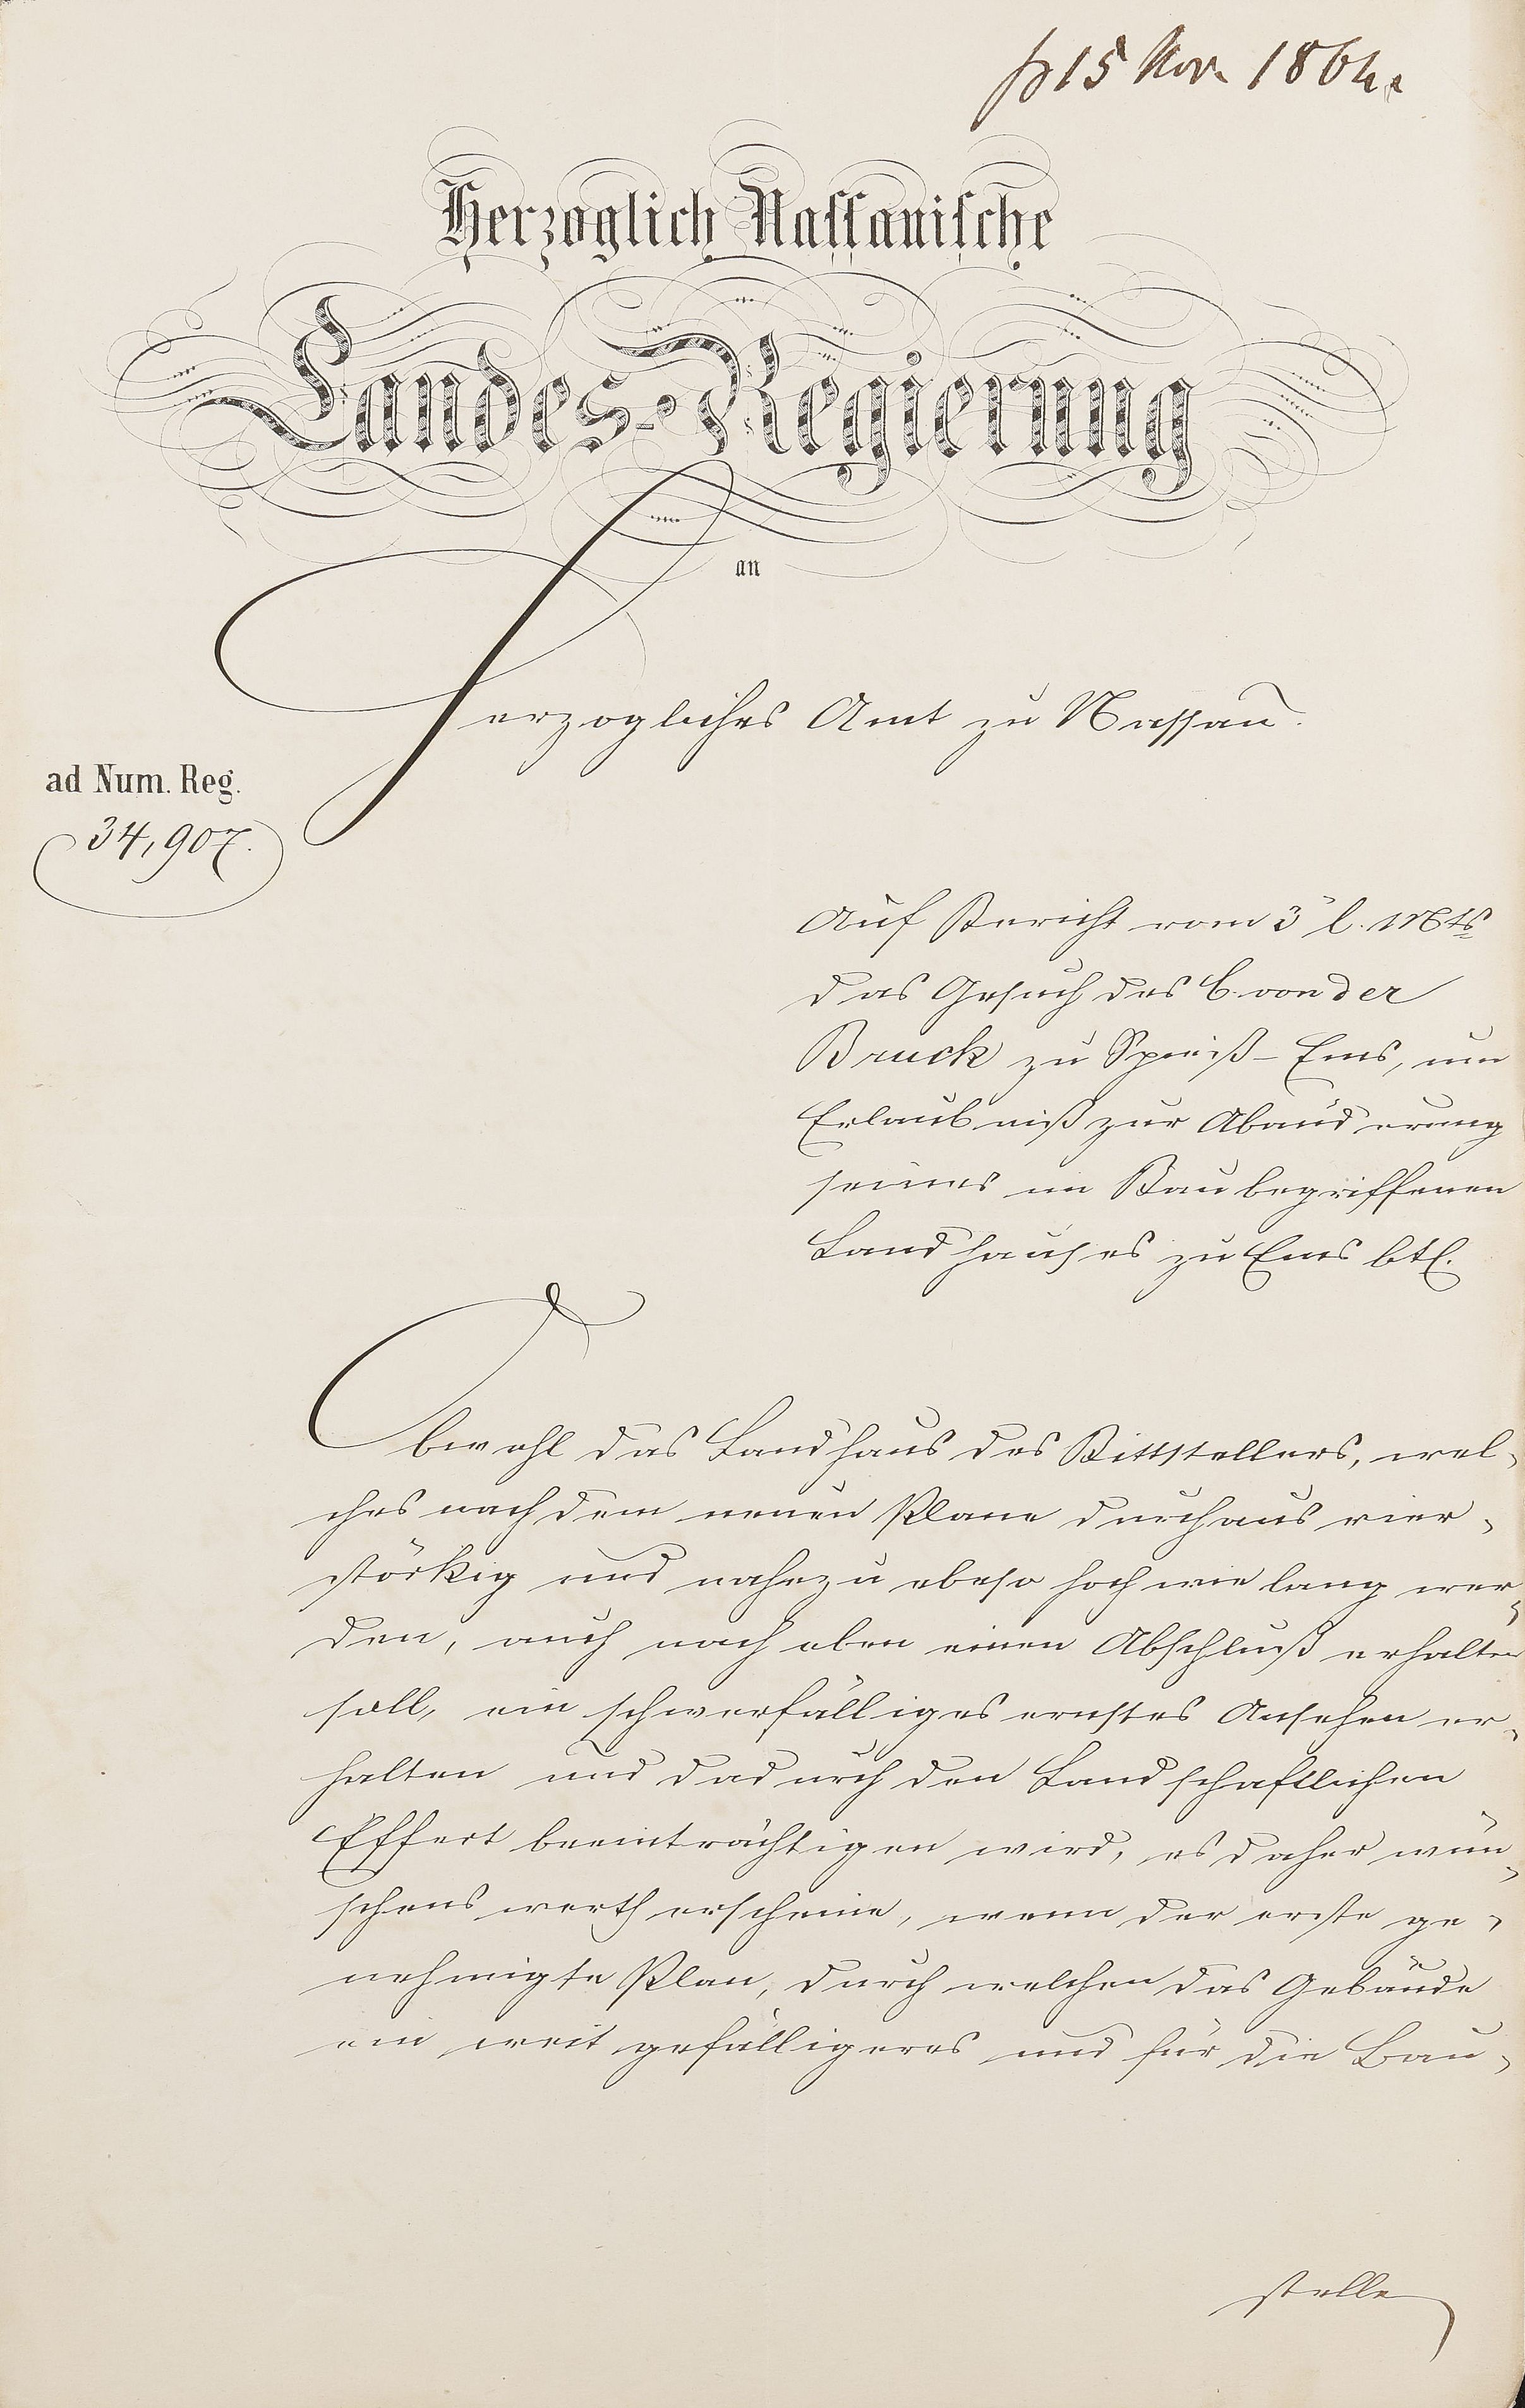 15 Nov. 1864.
Herzoglich Nassauische
Landes-Regierung
an
Herzogliches Amt zu Nassau.
ad Num. Reg.
34,907.
Auf Bericht vom 3t l. Mts
das Gesuch des C. von der
Bruck zu Spieß-Ems, um
Erlaubniß zur Abänderung
seines im Bau begriffenen
Landhauses zu Ems btf.
Obwohl das Landhaus des Bittstellers, wel-
ches nach dem neuen Plane durchaus vier-
stöckig und nahezu ebeso hoch wie lang wer-
den, auch nach oben einen Abschluß erhalten
soll, ein schwerfälliges ernstes Ansehen er-
halten und dadurch den Landschaftlichen
Effect beeinträchtigen wird, es daher wün-
schenswerth erscheine, wenn der erste ge-
nehmigte Plan, durch welchen das Gebäude
ein weit gefälligeres und für die Bau-
stelle